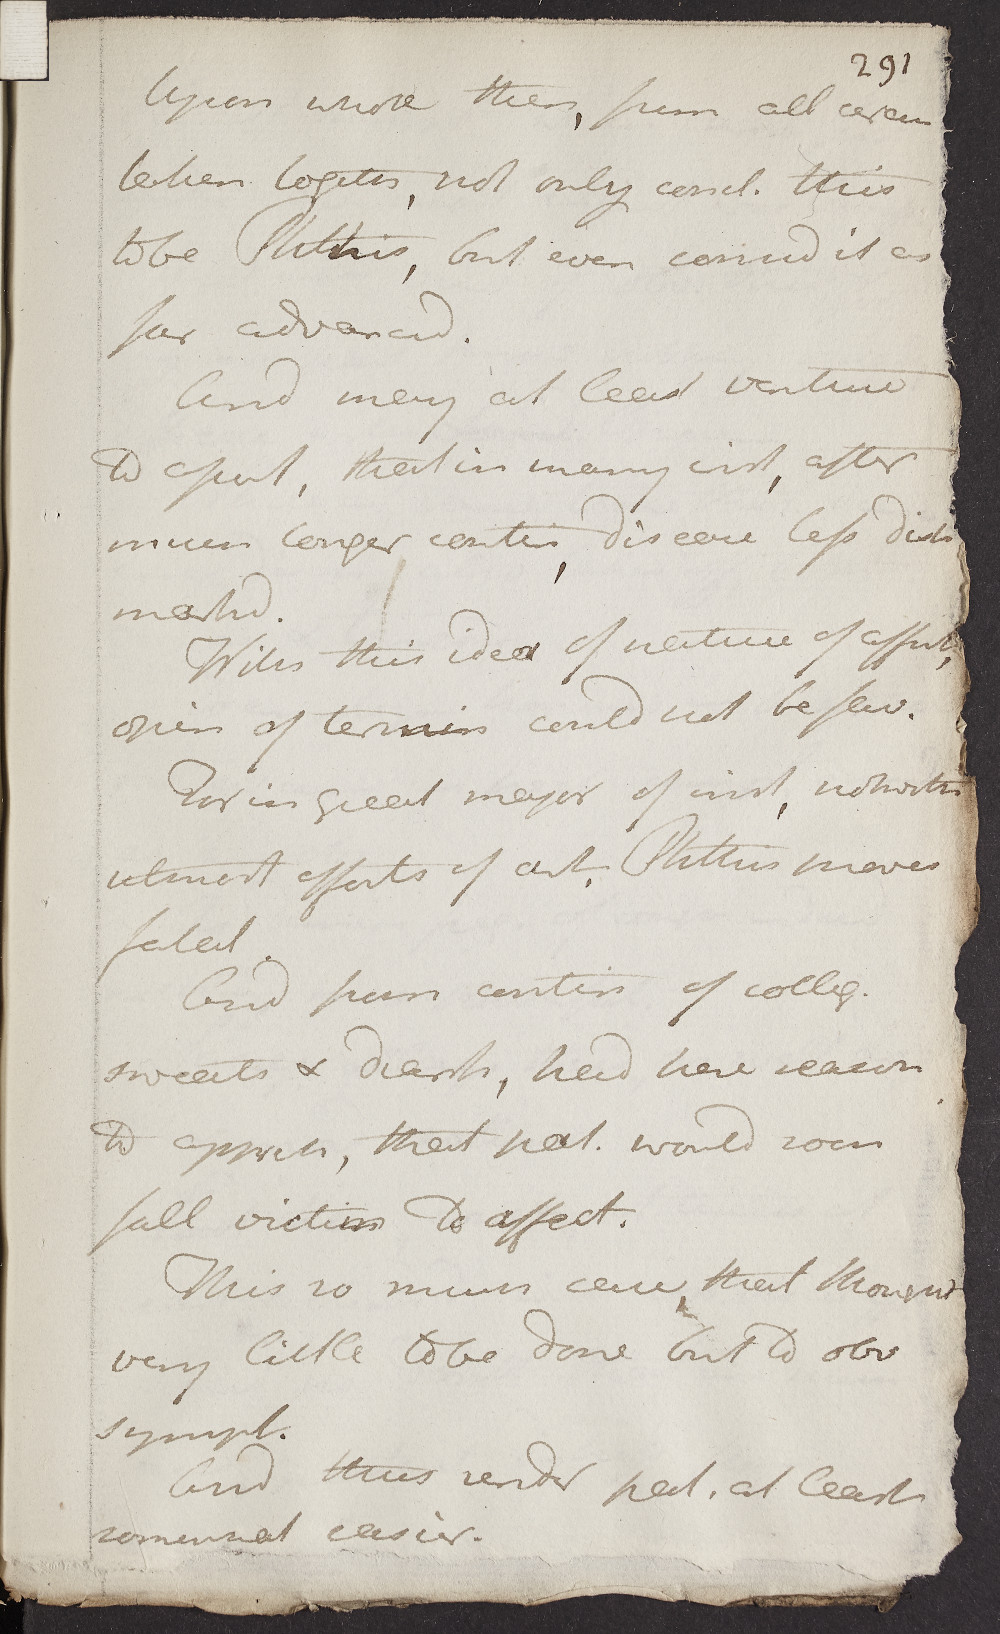 291
Upon whole then, from all circum
taken togeth, not only concl. this
to be Phthis, but even consid it as
far advancd.
And may at least venture
to assert, that in many inst, after
much longer contin, disease less dist
markd.
With this idea of nature of affect,
opin of termin could not be fav.
For in great major of inst, notwith
utmost efforts of art, Phthis proves
fatal.
And from contin of colliq.
sweats & diarrh, had here reason
to appreh, that pat. would soon
fall victim to affect.
This so much case, that thought
very little to be done but to obv
sympt.
And thus render pat. at least
somewhat easier.